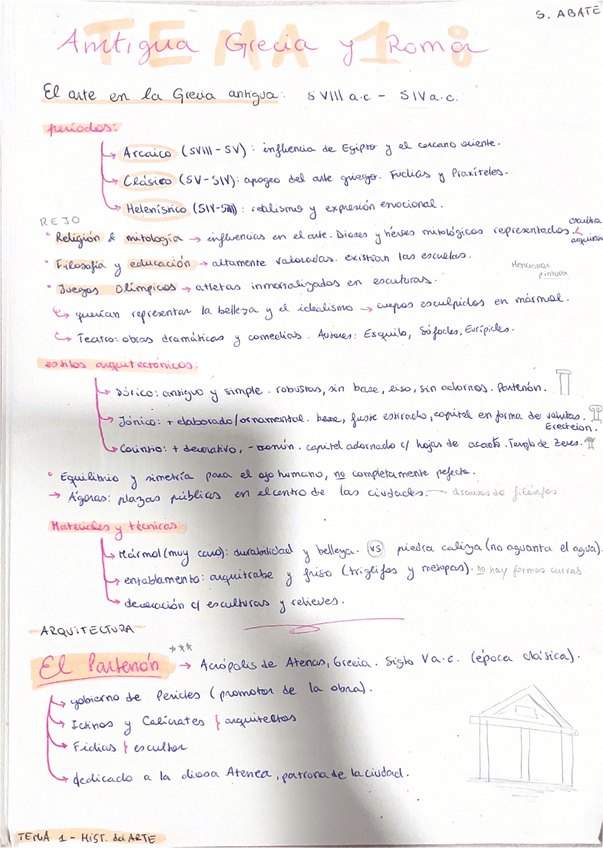 S. ABATE
TEMA 1:
Antigua Grecia y Roma
El arte en la Grecia antigua: SVIII a.c - SIV a.c.
períodos:
Arcaico (SVIII - SV): influencia de Egipto y el cercano oriente.
Clásico (SV-SIV): apogeo del arte griego. Fidias y Praxíteles.
Helenístico (SIV-SII): realismo y expresión emocional.
REJO
• Religión & mitología → influencias en el arte. Dioses y héroes mitológicos representados. escultura
arquitectura
• Filosofía y educación → altamente valoradas. existían las escuelas.
pintura
• Juegos Olímpicos → atletas inmortalizados en esculturas.
querían representar la belleza y el idealismo → cuerpos esculpidos en mármol.
Teatro: obras dramáticas y comedias. Autores: Esquilo, Sófocles, Eurípides.
estilos arquitectónicos:
Dórico: antiguo y simple. robustas, sin base, liso, sin adornos. Partenón.
Jónico: + elaborado/ornamental. base, fuste estirado, capitel en forma de volutas.
Erecteion.
Corintio: + decorativo, - común. capitel adornado c/ hojas de acanto. Templo de Zeus.
• Equilibrio y simetría para el ojo humano, no completamente perfecta.
→ Ágoras: plazas públicas en el centro de las ciudades. → discursos de filósofos
Materiales y técnicas:
Mármol (muy caro): durabilidad y belleza. VS piedra caliza (no aguanta el agua).
entablamento: arquitrabe y friso (triglifos y metopas). no hay formas curvas
decoración c/ esculturas y relieves.
ARQUITECTURA
El Partenón *** → Acrópolis de Atenas, Grecia. Siglo V a.c. (época clásica).
gobierno de Pericles (promotor de la obra).
Ictinos y Calícrates } arquitectos
Fidias } escultor
dedicado a la diosa Atenea, patrona de la ciudad.
TEMA 1 - HIST. del ARTE